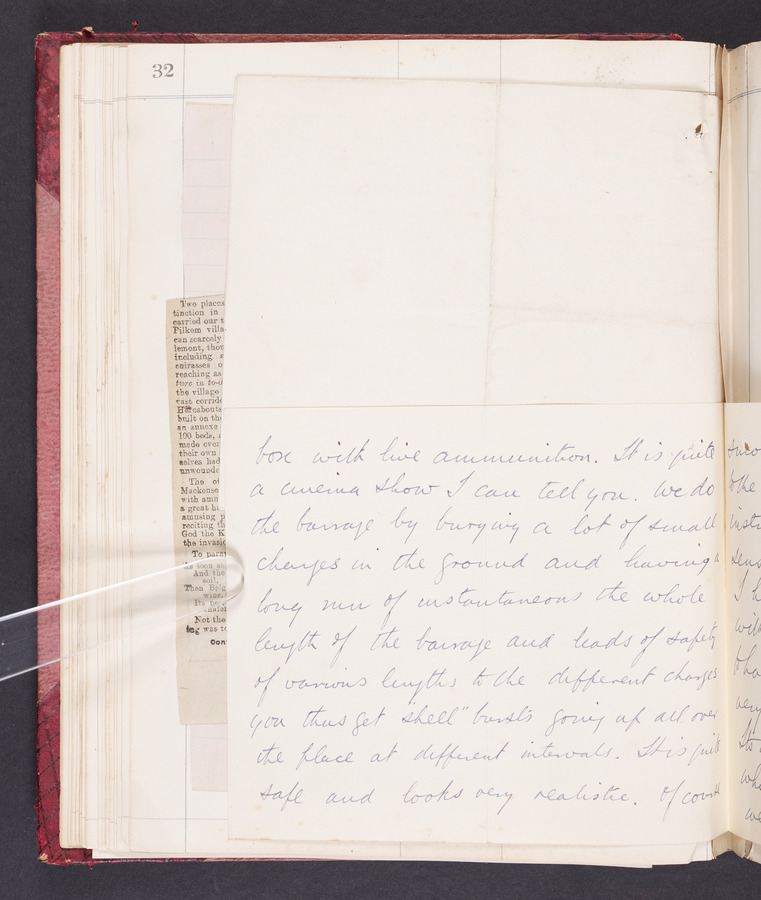 32
Two places
tinction in
carried our
Pilkem villa
can scarcely
lemont, thou
including
cuirasses o
reaching as
ture in to-d
the village
vast corrido
Hereabouts
built on the
an annexe
100 beds,
made over
their own
selves had
unwounde
The of
Mackense
with amu
a great hi
amusing p
reciting th
God the K
the invasio
To para
as soon as
And the
soil,
Than Belg
Its
Not the
ing was to
Con
box with live ammunition. It is quite
a cinema show I can tell you. We do
the barrage by burying a lot of small
charges in the ground and having a
long run of instantaneous the whole
length of the barrage and leads of safety
of various lengths to the different charges
you thus get "shell" bursts going up all over
the place at different intervals. It is quite
safe and looks very realistic. Of course
smo
to the
inst
sens
I h
with
tha
very
Its
wh
we